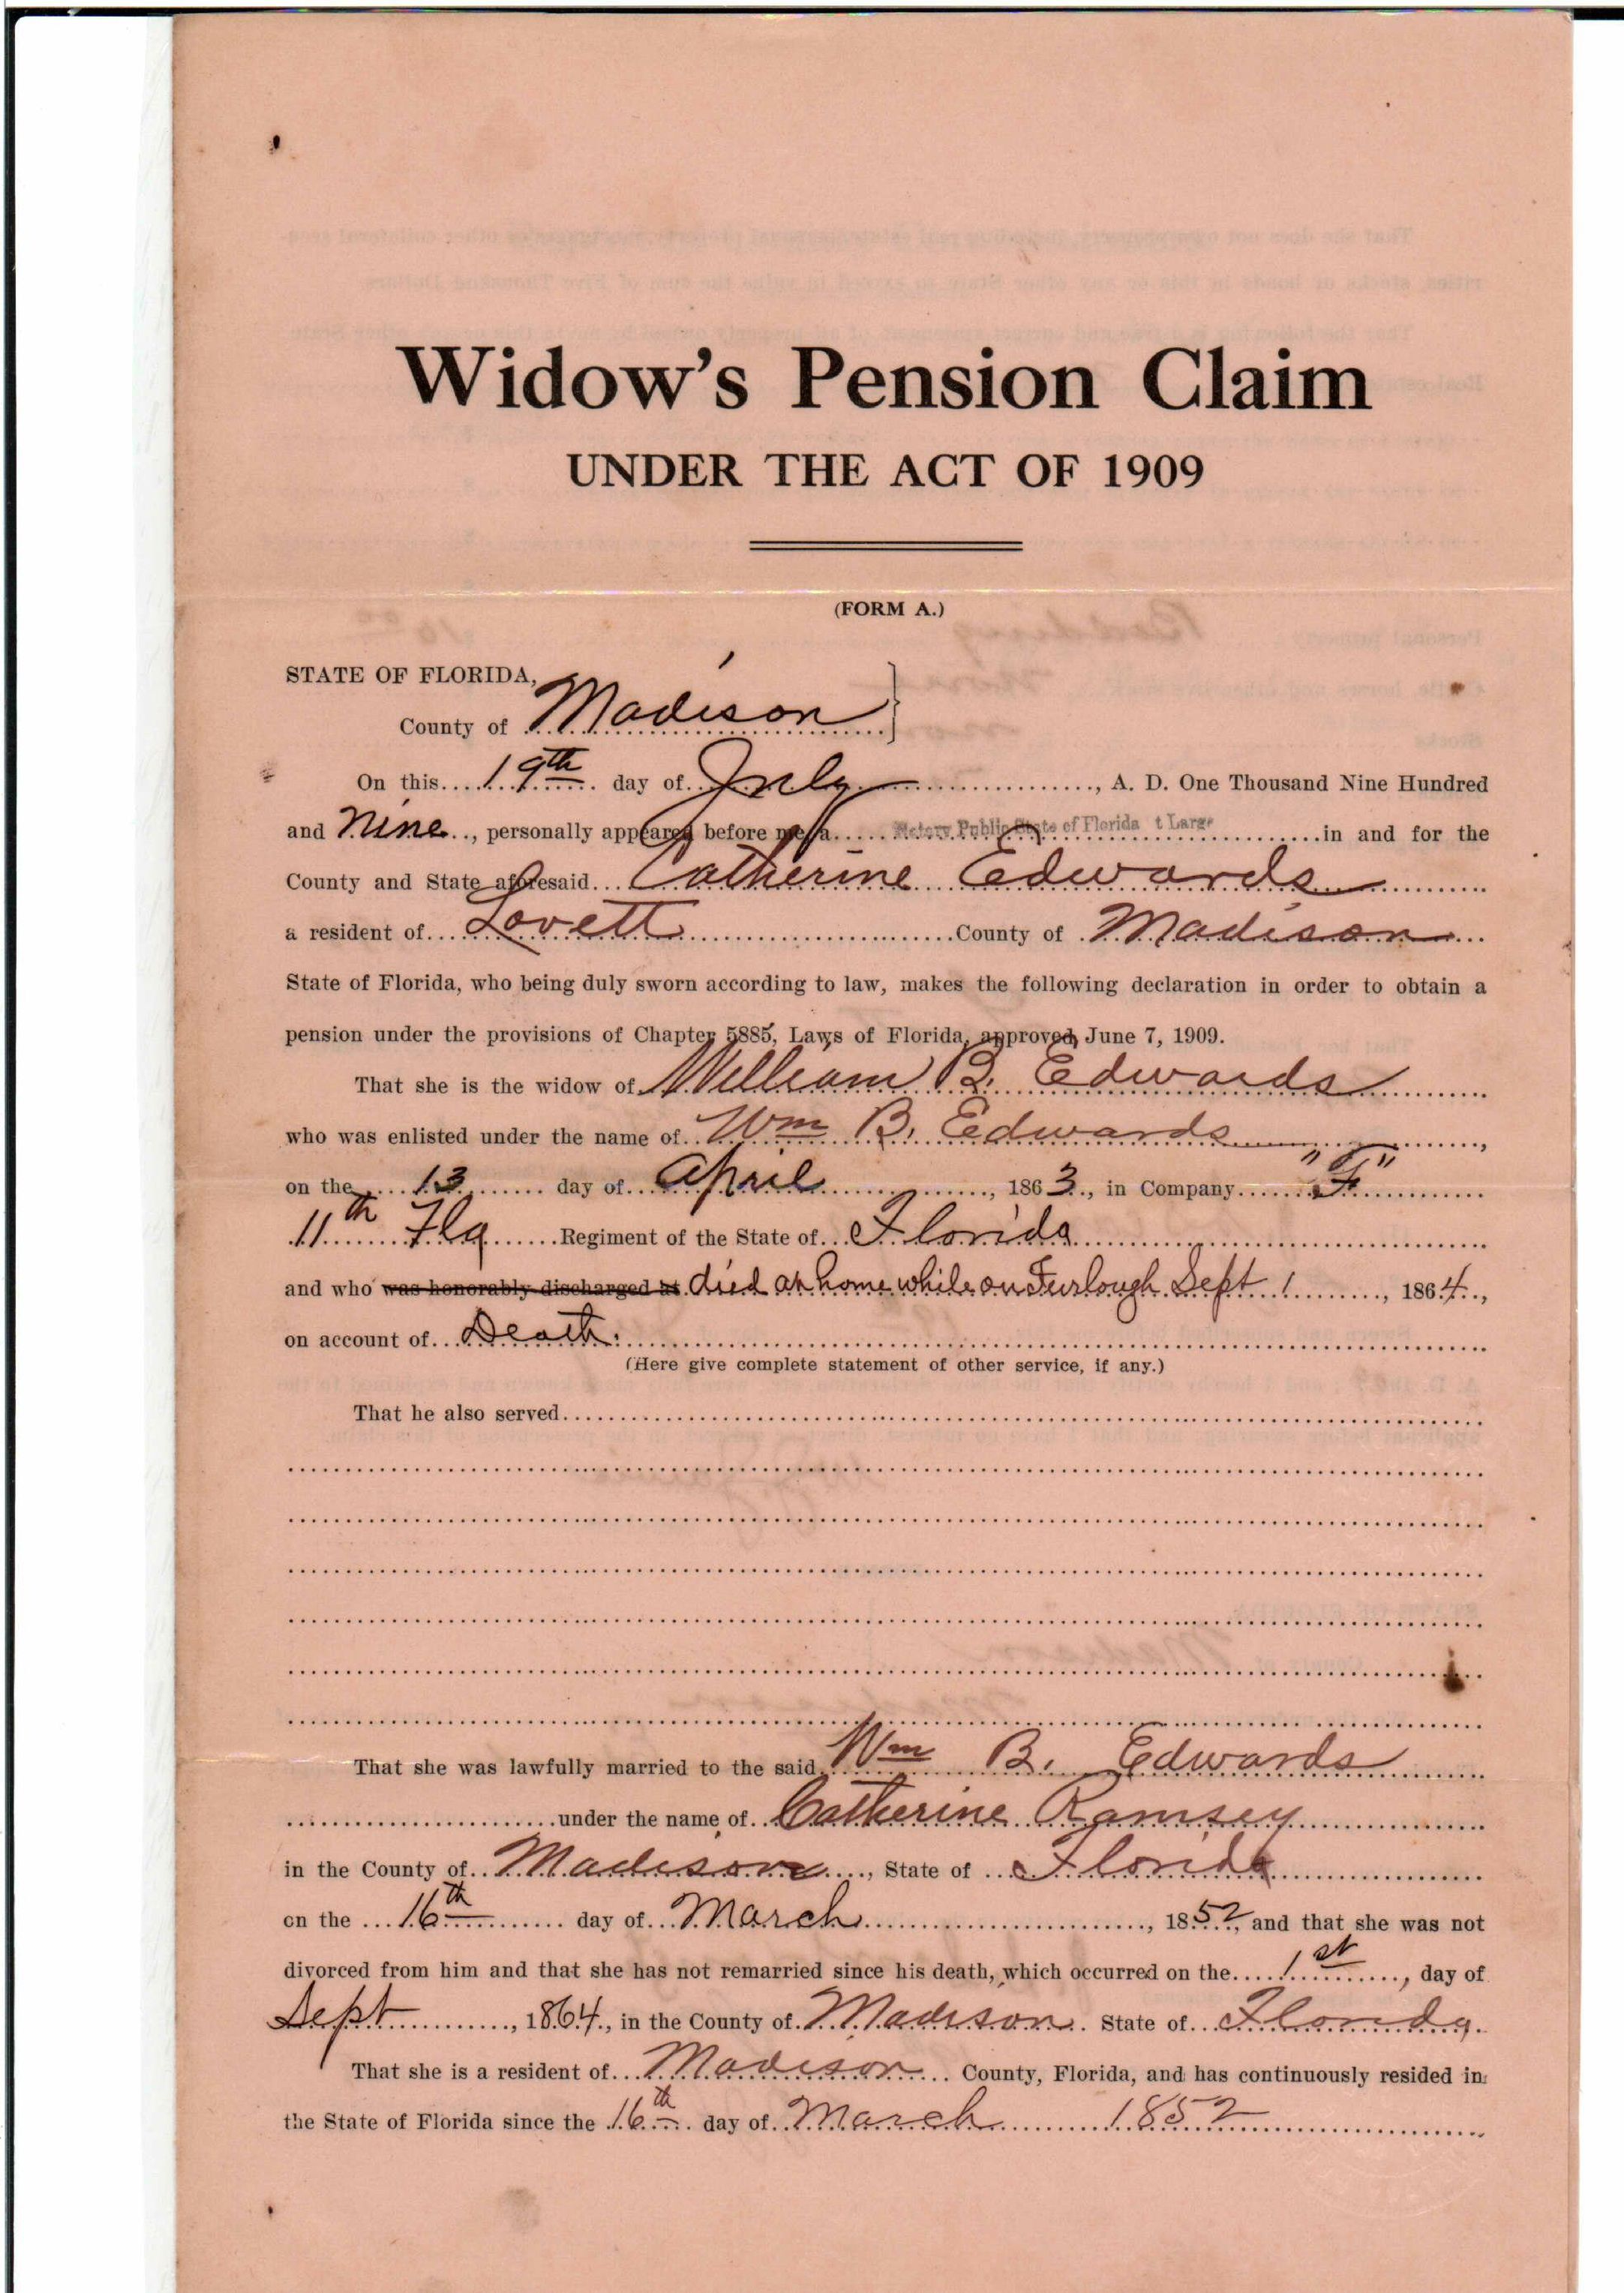 Widow's Pension Claim
UNDER THE ACT OF 1909
(FORM A.)
STATE OF FLORIDA,
County of Madison
On this 19th day of July, A. D. One Thousand Nine Hundred
and Nine, personally appeared before me, a Notary Public State of Florida t Large in and for the
County and State aforesaid Catherine Edwards
a resident of Lovett County of Madison
State of Florida, who being duly sworn according to law, makes the following declaration in order to obtain a
pension under the provisions of Chapter 5885, Laws of Florida, approved June 7, 1909.
That she is the widow of William B. Edwards
who was enlisted under the name of Wm B. Edwards,
on the 13 day of April, 1863, in Company "F"
11th Fla Regiment of the State of Florida
and who was honorably discharged at died at home while on Furlough Sept 1, 1864,
on account of Death.
(Here give complete statement of other service, if any.)
That he also served
That she was lawfully married to the said Wm B. Edwards
under the name of Catherine Ramsey
in the County of Madison, State of Florida
on the 16th day of March, 1852, and that she was not
divorced from him and that she has not remarried since his death, which occurred on the 1st, day of
Sept, 1864, in the County of Madison State of Florida.
That she is a resident of Madison County, Florida, and has continuously resided in
the State of Florida since the 16th day of March 1852